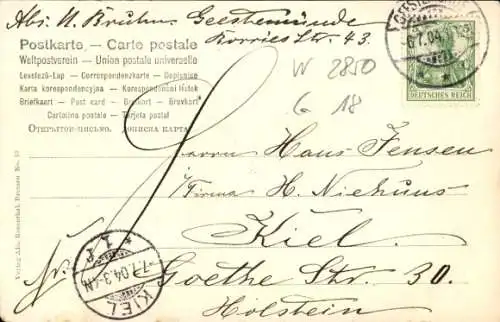 Abs: A. Bruhn. Geestemünde
Borries Str. 43.
Postkarte — Carte postale
Weltpostverein — Union postale universelle
Levelező-Lap — Correspondenzkarte — Dopisnice
Karta korespondencyjna — Korespondenční lístek
Briefkaart — Post card — Brevkort — Brevkort
Cartolina postale — Tarjeta postal
Открытое письмо.
W 2850
G 18
6.7.04
DEUTSCHES REICH
Herrn Hans Jensen
Firma H. Niehuus
Kiel.
Goethe Str. 30.
Holstein
KIEL
7.7.04.3-4N